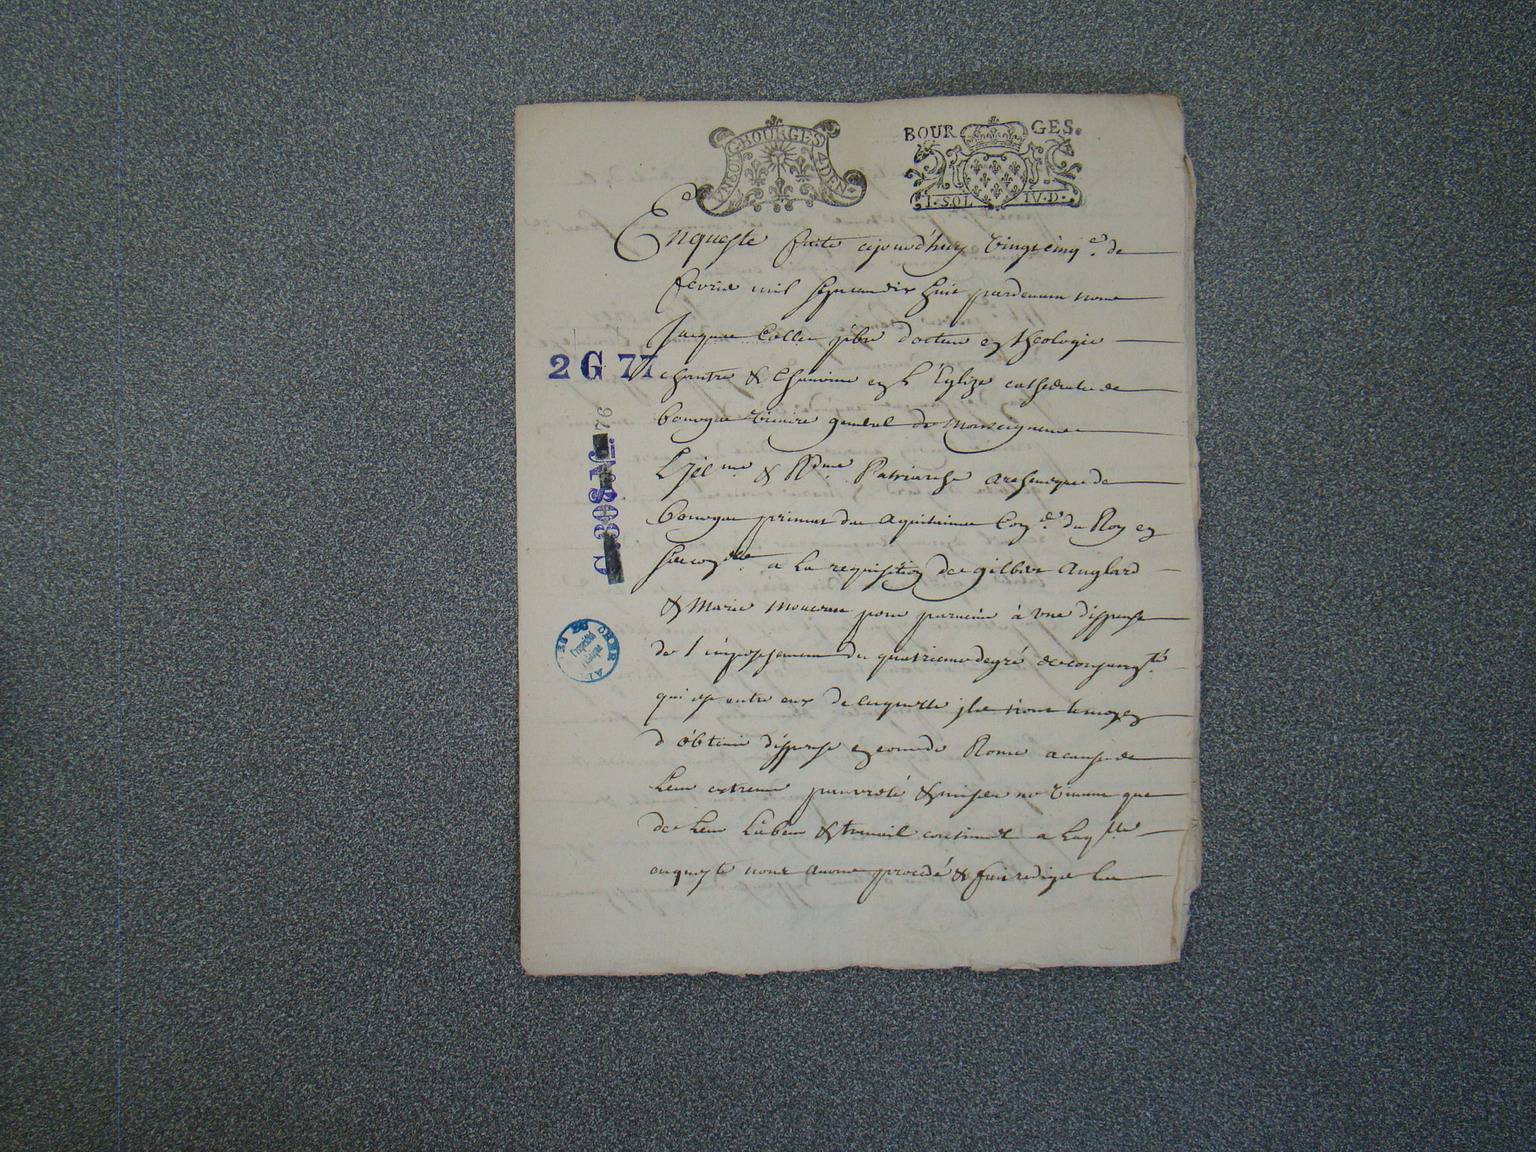 BOURGES 4 DEN.
BOURGES.
1. SOL IV. D.
Enqueste faite cejourd'huy vingt cinq.e de
fevrier mil sept cen dix huit pardevant nous
Jacques Collin pbre docteur en theologie
chantre & chanoine en L'Eglize cathedrale de
bourges vicaire general de Monseigneur
L'jll.me & R.dme Patriarche archevesque de
2 G 77
bourges primat des aquitaines Con.er du Roy en
76
ses con.eils a la requisition de gilbert Anglard
& Marie moucau pour parvenir à une dispense
DU CHER
de l'empeschement du quatrieme degré de consang.té
qui est entre eux de laquelle jls nont le moyen
d'obtenir dispense en cour de Rome a cause de
Leur extreme pauvreté & ne vivant que
de Leur Labeur & travail continuel a Laq.lle
enqueste nous avons procedé & fait rediger Les